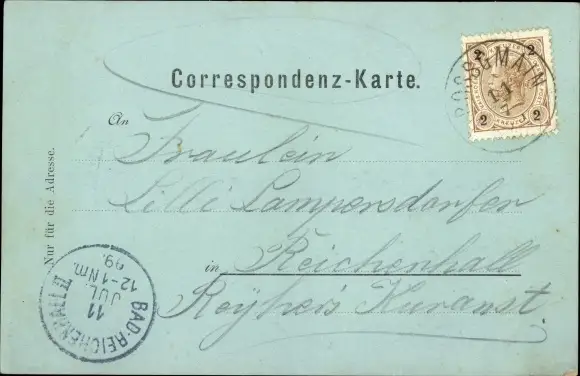 Correspondenz-Karte.
2 2
2 2
GROSSGMAIN
11
7
An
Fräulein
Lilli Lampersdorfer
in Reichenhall
Nur für die Adresse.
BAD-REICHENHALL II
11
JUL.
12-1 Nm.
99.